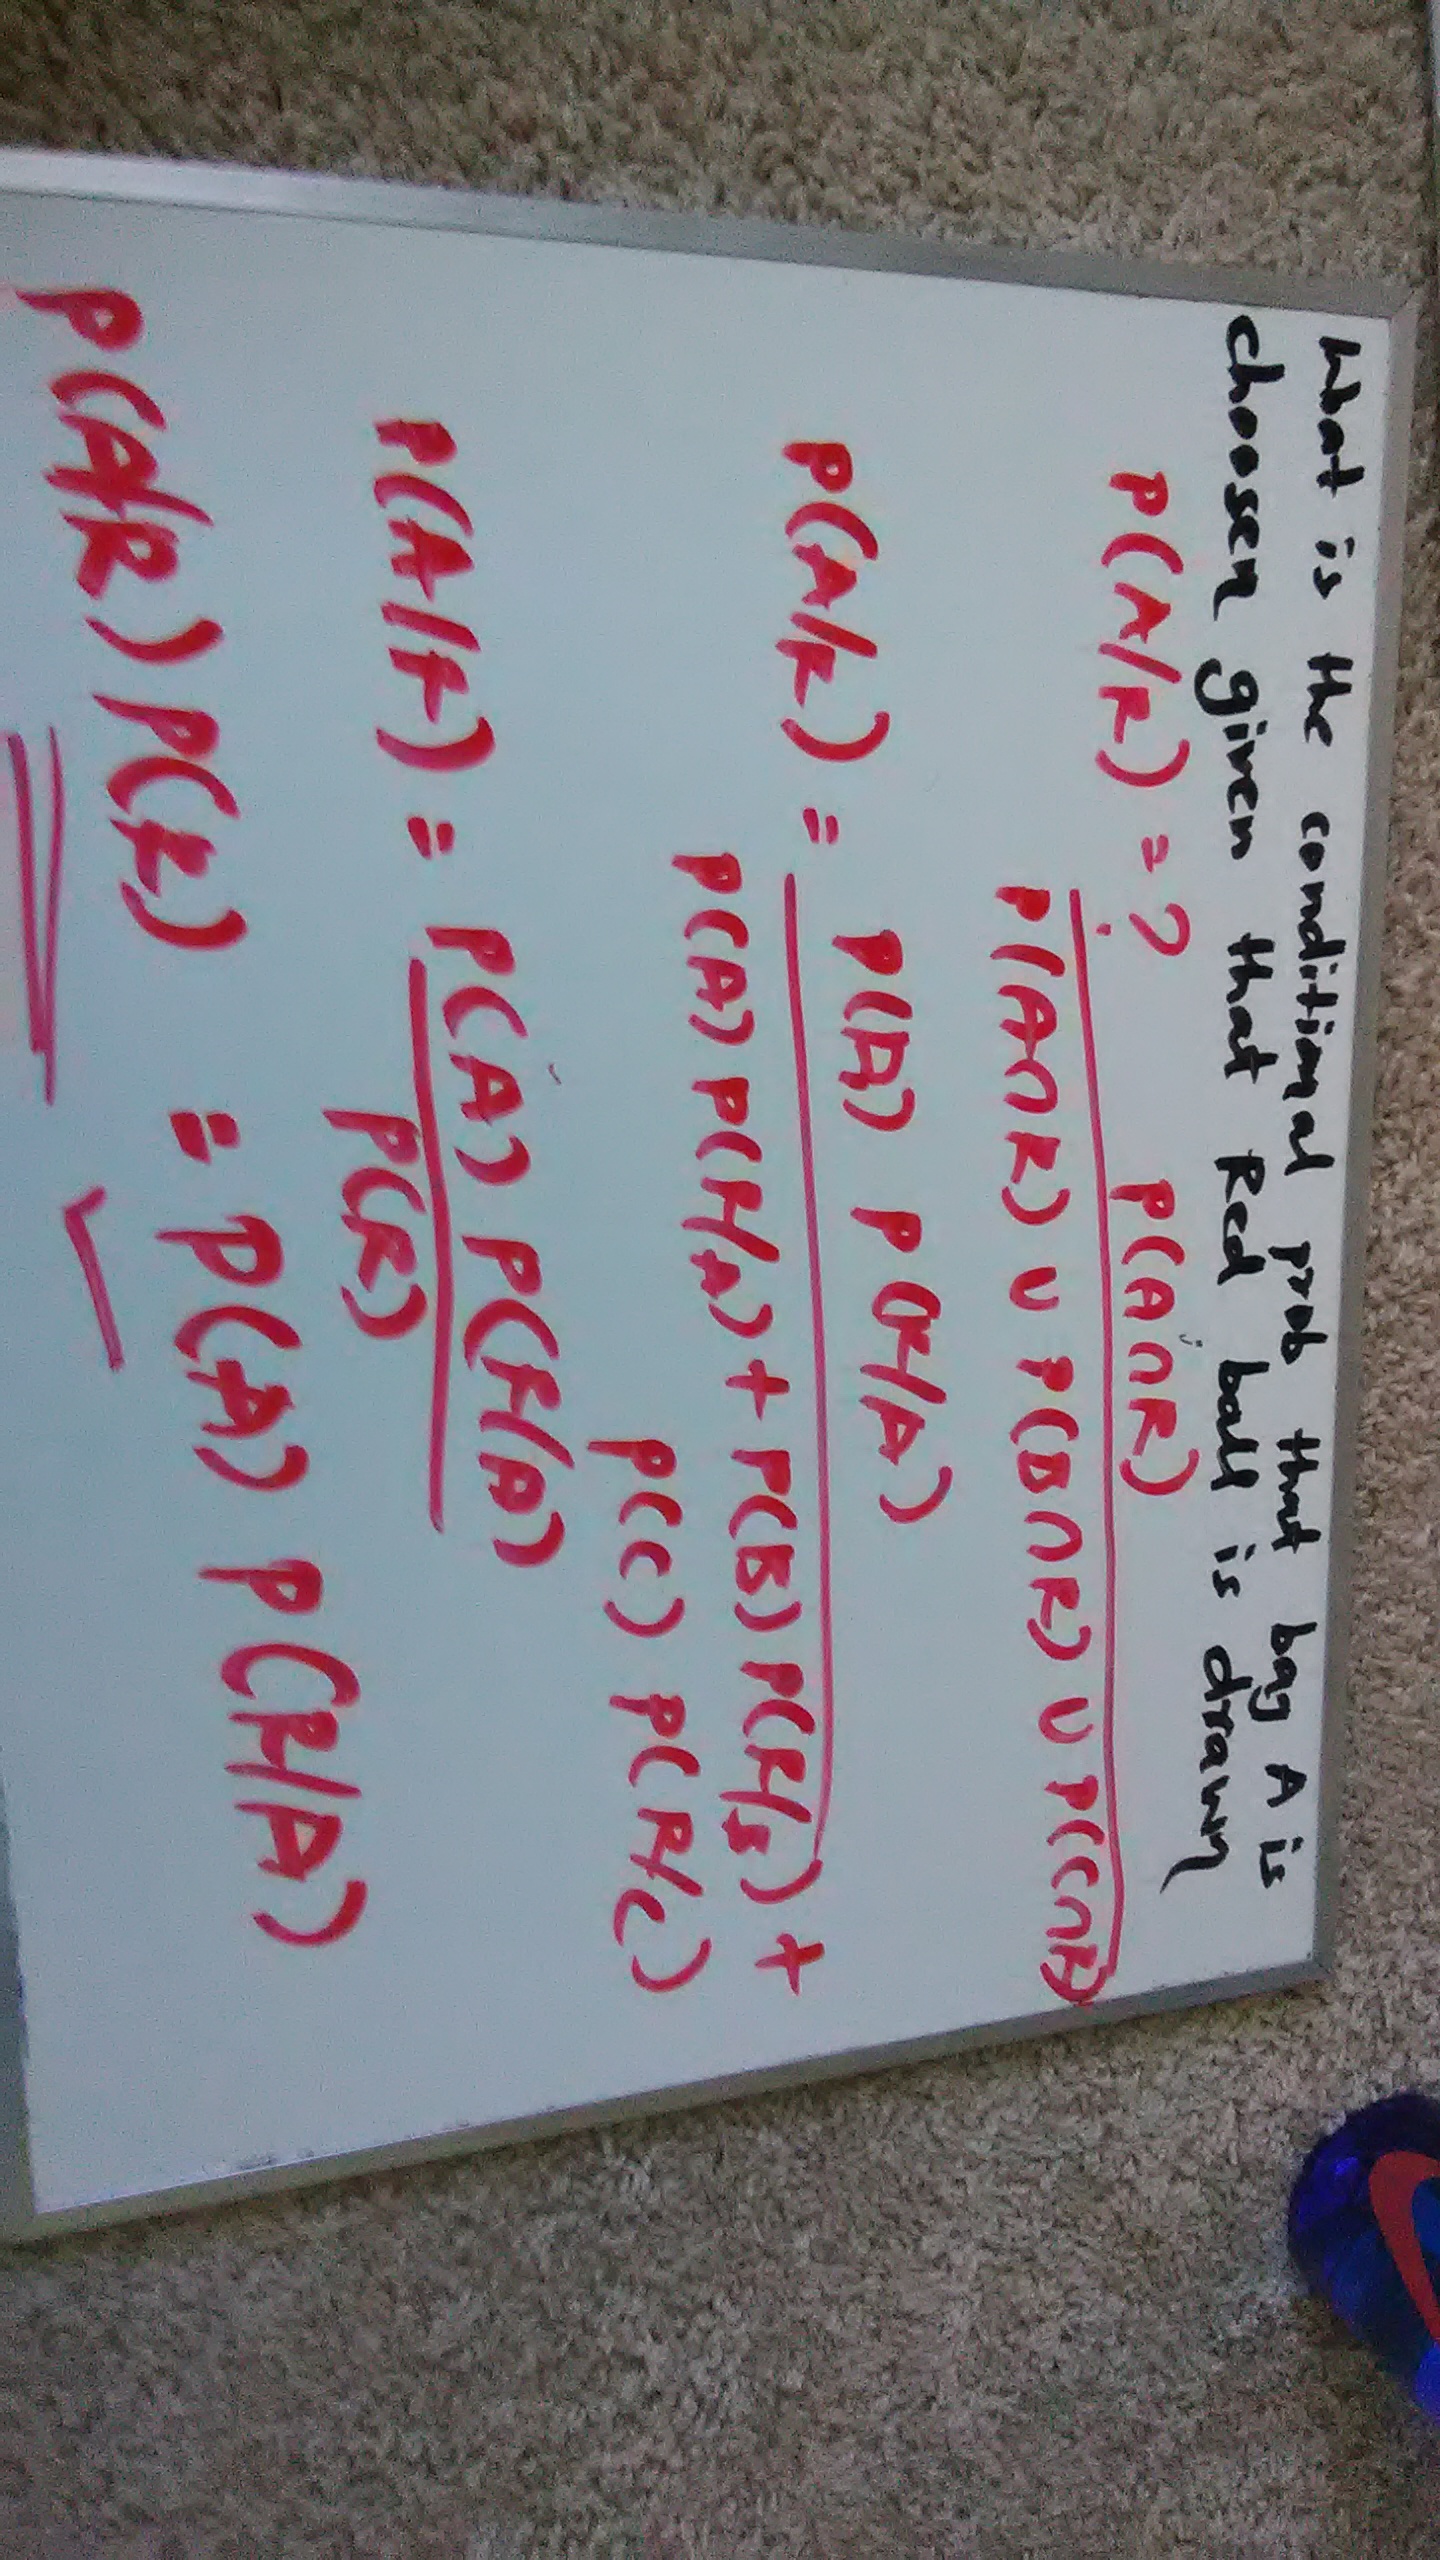 What is the conditional prob that bag A is
chosen given that Red ball is drawn
P(A/R) = ? P(A∩R)
P(A∩R) ∪ P(B∩R) ∪ P(C∩R)
P(A/R) = P(A) P(R/A)
P(A) P(R/A) + P(B) P(R/B) +
P(C) P(R/C)
P(A/R) = P(A) P(R/A)
P(R)
P(A/R) P(R) = P(A) P(R/A)